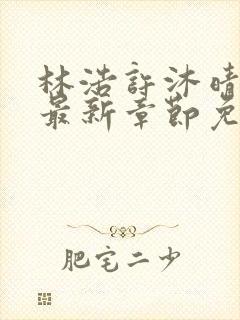 林浩許沐晴
最新章節免
肥宅二少